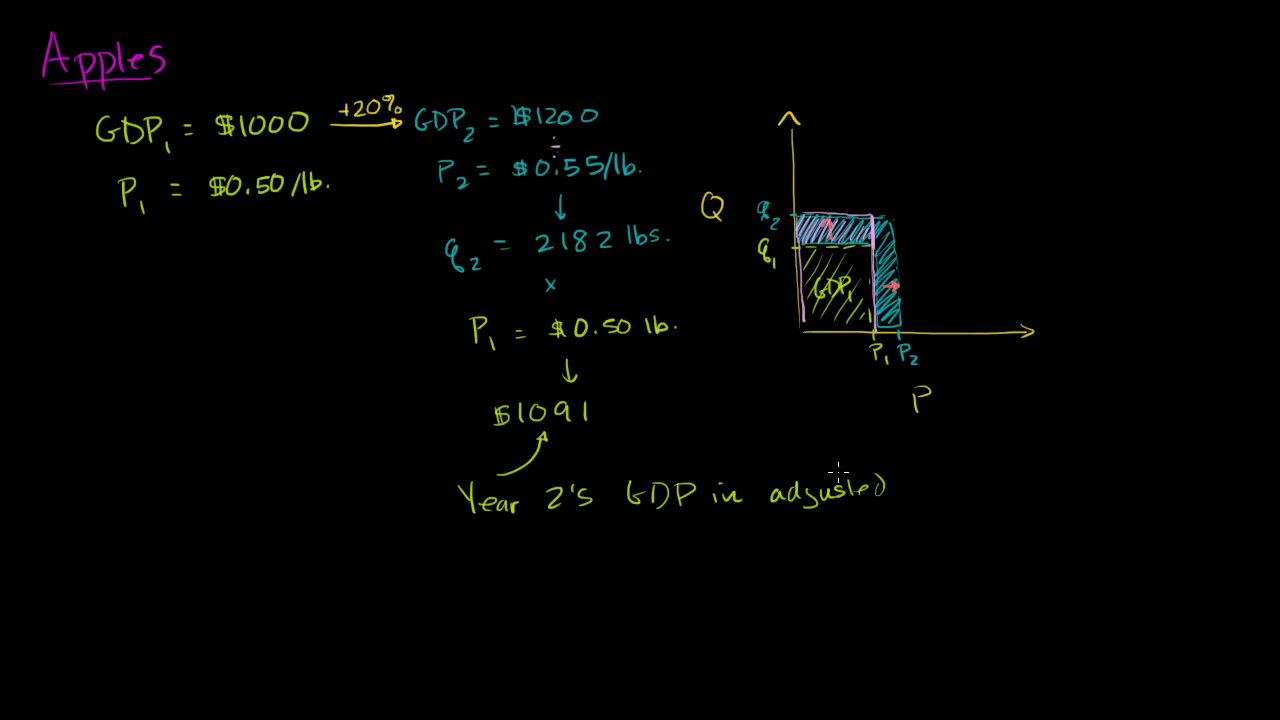 Apples
GDP₁ = $1000 +20% GDP₂ = $1200
÷
P₁ = $0.50/lb. P₂ = $0.55/lb.
q₂ = 2182 lbs.
x
P₁ = $0.50 lb.
$1091
Year 2's GDP in adjusted
Q
q₂
q₁
GDP₁
P₁ P₂
P